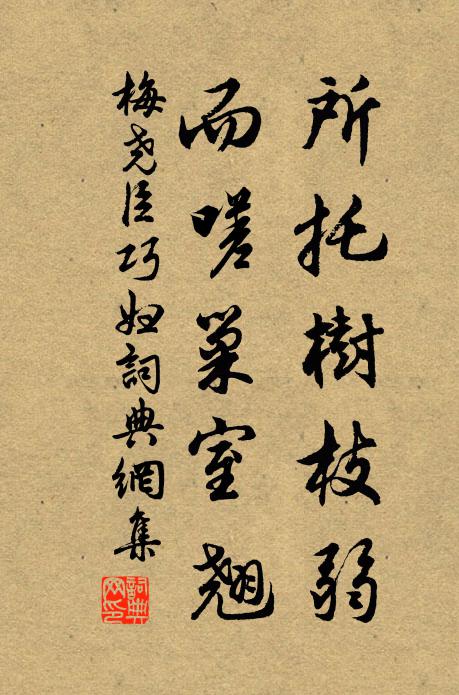 所托樹枝弱
而嗟巢室翹
梅堯臣巧婦詞典網集
詞典網印